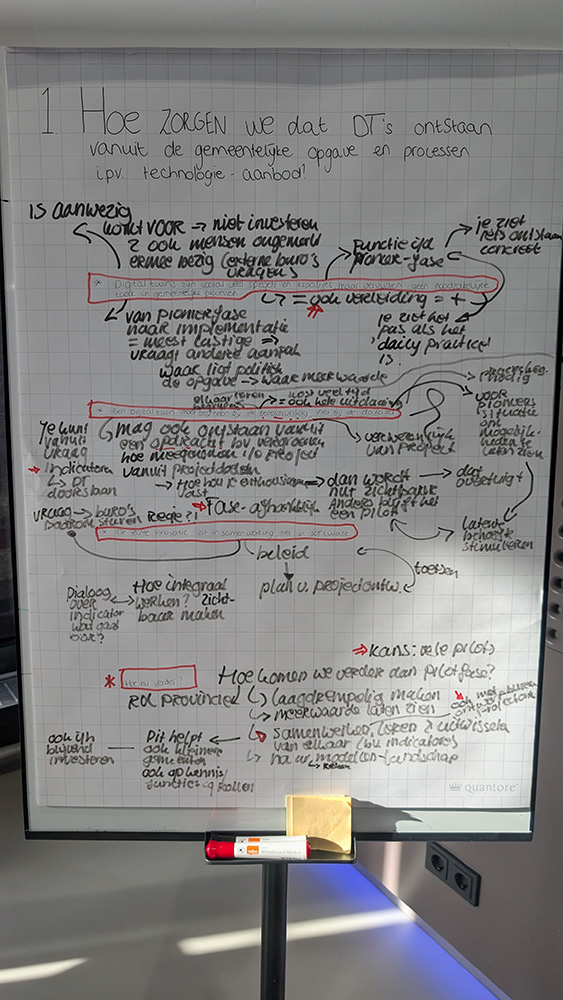 1. Hoe ZORGEN we dat DT's ontstaan
vanuit de gemeentelijke opgave en processen
i.p.v. technologie-aanbod?
IS aanwezig
komt voor → niet investeren
2 ook mensen ongemerkt
ermee bezig (externe buro's
vragen)
Functie ijd
pionier-fase
je ziet
iets ontstaan
concreet
* Digital twins zijn vooral veel spiegels en kraaltjes, maar vervullen geen noodzakelijke
taak in gemeentelijke processen
= ook verleiding = +
van pioniersfase
naar implementatie
= meest lastige ⇒
vraagt andere aanpak
waar ligt politiek
de opgave → waar meerwaarde
je ziet het
pas als het
'daily practice'
is.
elkaar leren
= kost veel tijd
= ook hele uitdaging
* Een digital twin moet beginnen bij een beleidsvraag, niet bij de data
proces
nodig
voor
pioniers
situatie
om
mogelijk-
te laten zien
Je kunt
vanuit
vraag
indicatoren
↳ DT
doorslaan
mag ook ontstaan vanuit
een opdracht bv vergroenen
hoe meegenomen i/o project
vanuit projectdoelen
→ Hoe hou je enthousiasme
vast
verantwoordelijk
van project
→ dan wordt
nut zichtbaar
Anders blijft het
een pilot
→ dat
overtuigt
vraag → buro's
daarom sturen
Regie?!
⇒ Fase-afhankelijk
latente
behoefte
stimuleren
* De echte innovatie zit in samenwerking, niet in software
beleid
plan v. projectontw.
toetsen
Dialoog
over
indicator
wat gaat
Hoe integraal
werken? Zicht-
baar maken
⇒ kans: vele pilots
* Hoe nu verder?
Hoe komen we verder dan pilotfase?
ROL PROVINCIE
↳ laagdrempelig maken
↳ meerwaarde laten zien
↳ samenwerken, leren & uitwisselen
van elkaar (bv indicatoren)
↳ naar modellen-landschap
↳ Rekken
ook ijh
blijvend
investeren
Dit helpt
ook kleinere
gemeenten
ook op kennis/
functie
rollen
quantore